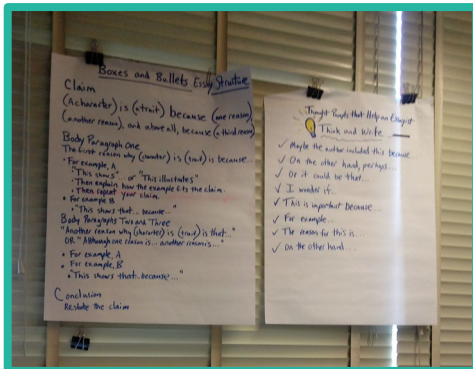 Boxes and Bullets Essay Structure
Claim
(A character) is (a trait) because (one reason),
(another reason), and above all, because (a third reason)
Body Paragraph One
The first reason why (character) is (trait) is because...
• For example, A
"This shows"... or "This illustrates"
• Then explain how the example fits the claim.
• Then repeat your claim.
• For example B
• "This shows that... because..."
Body Paragraphs Two and Three
"Another reason why (character) is (trait) is that..."
OR "Although one reason is... another reason is..."
• For example, A
• For example, B
"This shows that... because..."
Conclusion
Restate the claim
Thought Prompts that Help an Essayist
Think and Write
✓ Maybe the author included this because...
✓ On the other hand, perhaps...
✓ Or it could be that...
✓ I wonder if...
✓ This is important because...
✓ For example...
✓ The reason for this is...
✓ On the other hand...